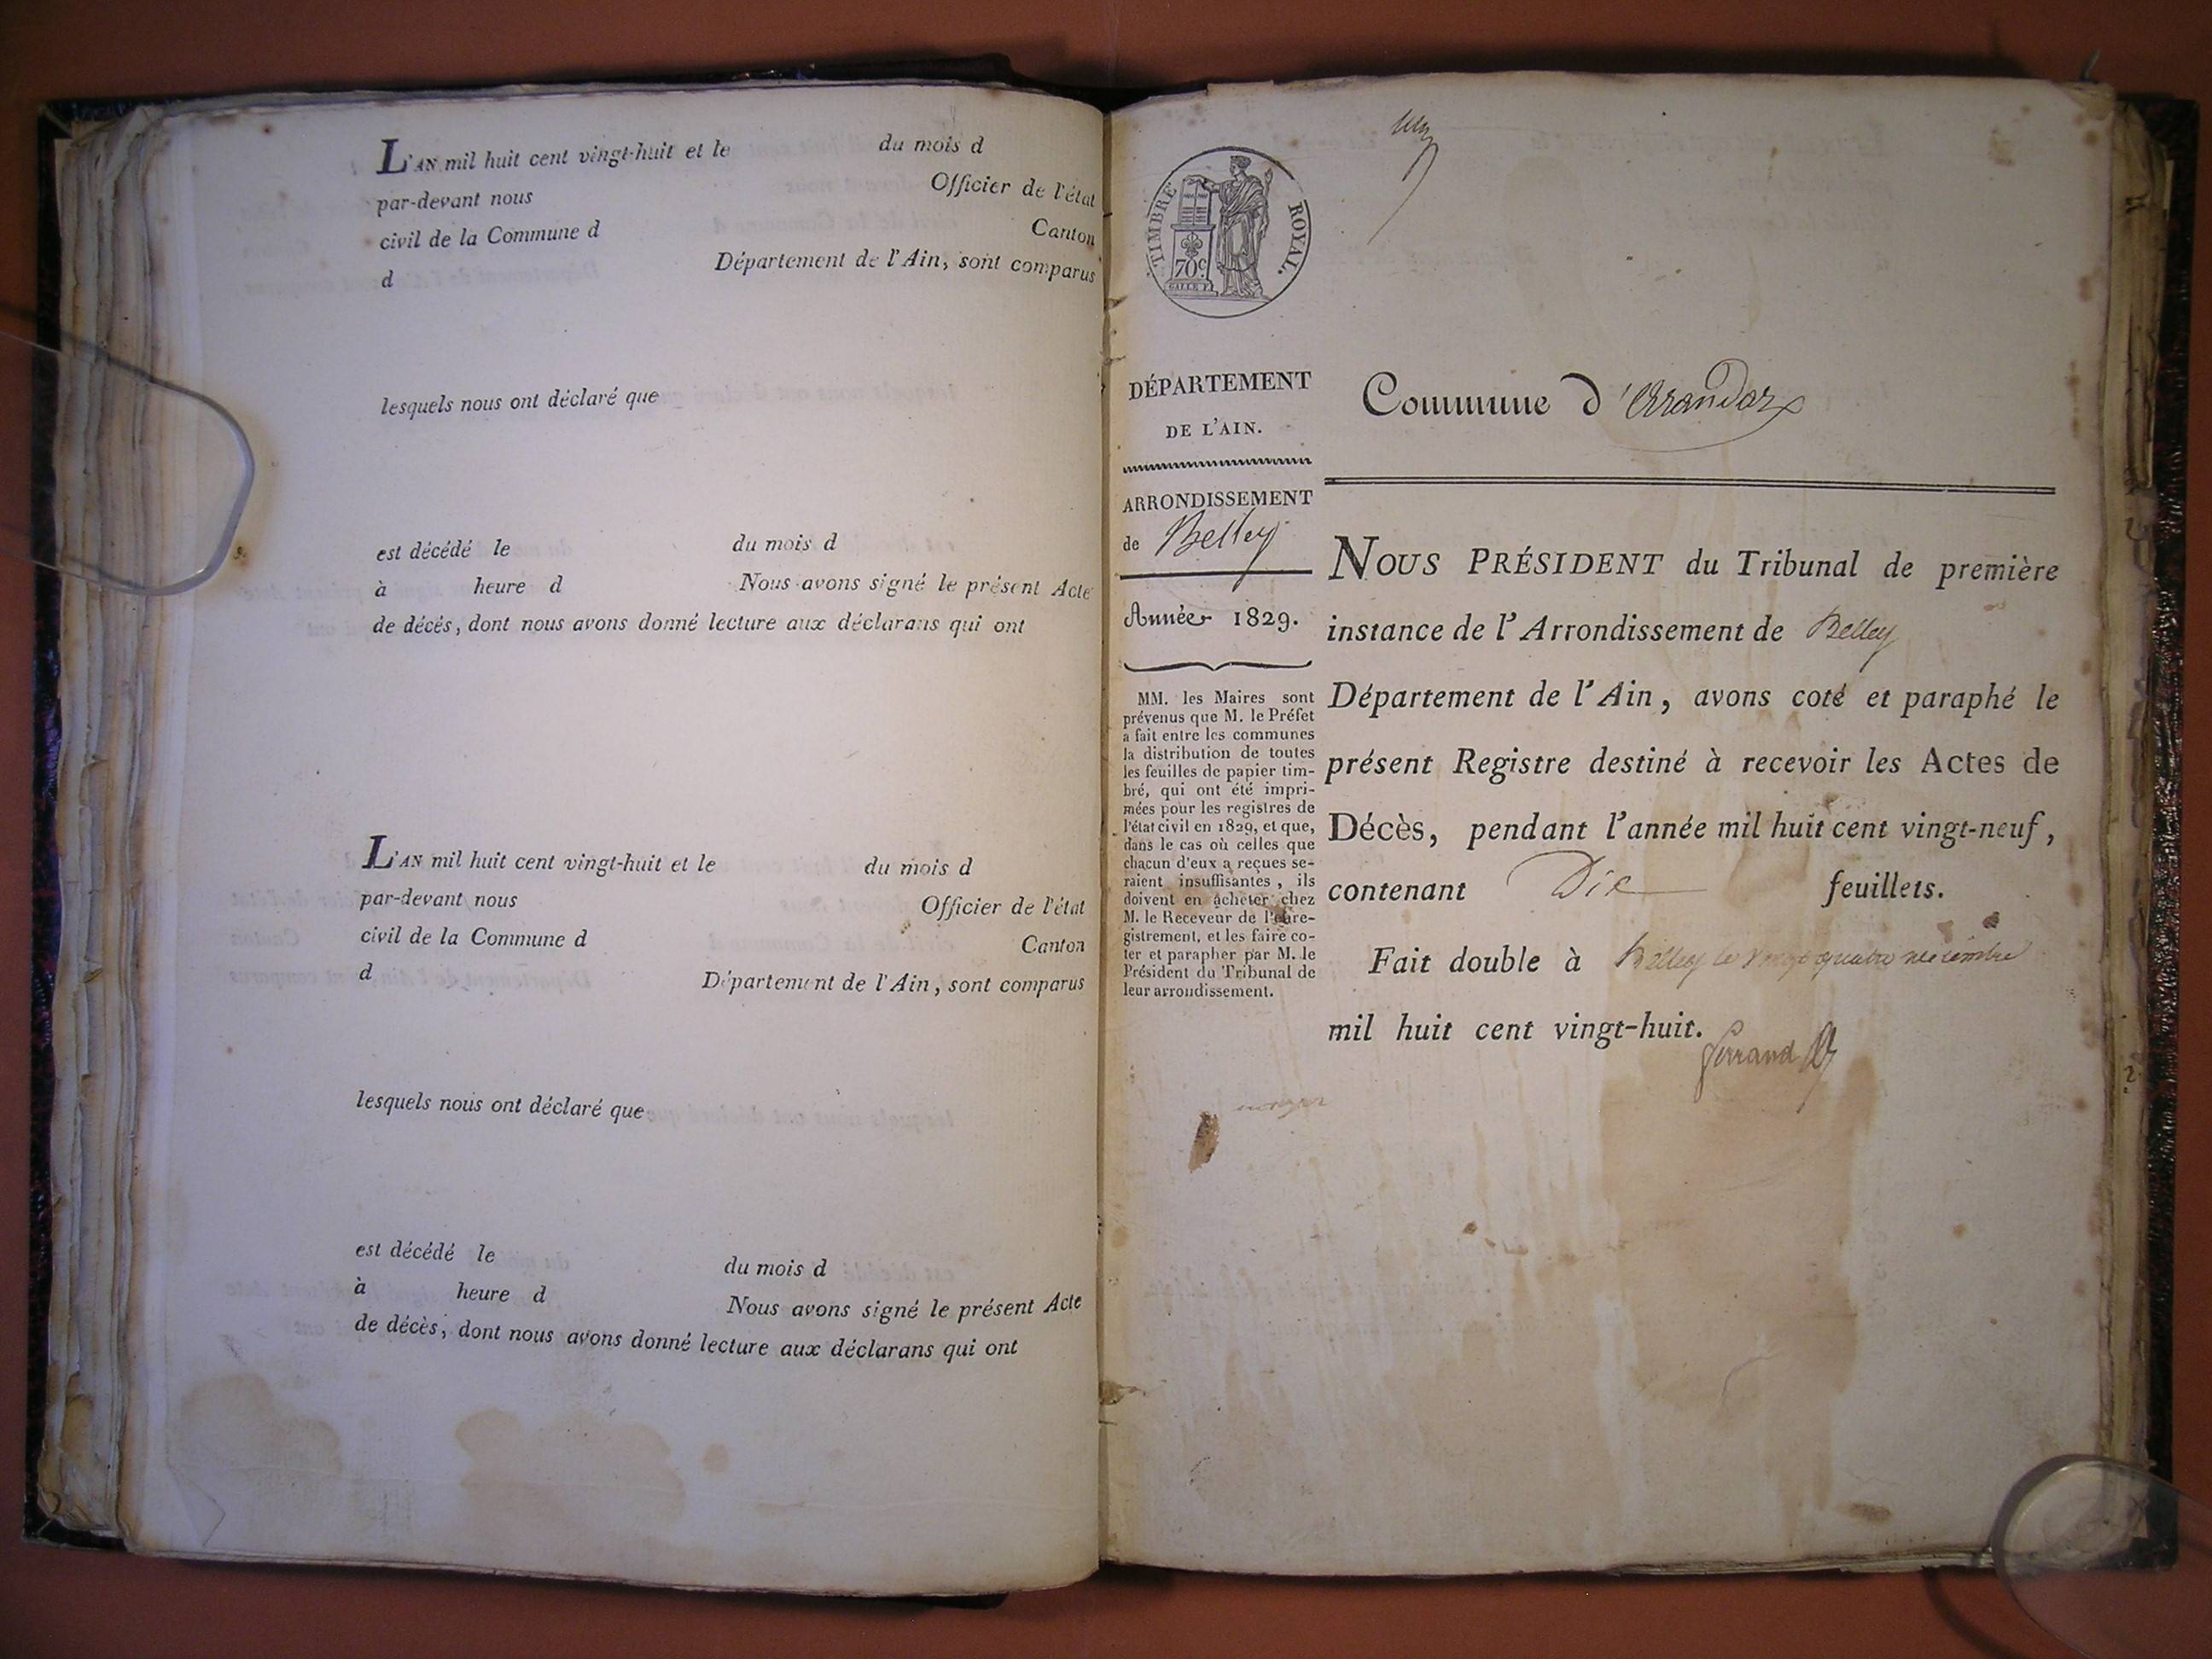 L'AN mil huit cent vingt-huit et le du mois d
par-devant nous Officier de l'état
civil de la Commune d Canton
d Département de l'Ain, sont comparus
lesquels nous ont déclaré que
est décédé le du mois d
à heure d Nous avons signé le présent Acte
de décès, dont nous avons donné lecture aux déclarans qui ont
L'AN mil huit cent vingt-huit et le du mois d
par-devant nous Officier de l'état
civil de la Commune d Canton
d Département de l'Ain, sont comparus
lesquels nous ont déclaré que
est décédé le du mois d
à heure d Nous avons signé le présent Acte
de décès, dont nous avons donné lecture aux déclarans qui ont
TIMBRE ROYAL.
70c
DÉPARTEMENT
DE L'AIN.
ARRONDISSEMENT
de Belley
Année 1829.
MM. les Maires sont
prévenus que M. le Préfet
a fait entre les communes
la distribution de toutes
les feuilles de papier tim-
bré, qui ont été impri-
mées pour les registres de
l'état civil en 1829, et que,
dans le cas où celles que
chacun d'eux a reçues se-
raient insuffisantes, ils
doivent en acheter chez
M. le Receveur de l'enre-
gistrement, et les faire co-
ter et parapher par M. le
Président du Tribunal de
leur arrondissement.
Commune d'Arandas
NOUS PRÉSIDENT du Tribunal de première
instance de l'Arrondissement de Belley
Département de l'Ain, avons coté et paraphé le
présent Registre destiné à recevoir les Actes de
Décès, pendant l'année mil huit cent vingt-neuf,
contenant Dix feuillets.
Fait double à Belley le vingt quatre décembre
mil huit cent vingt-huit.